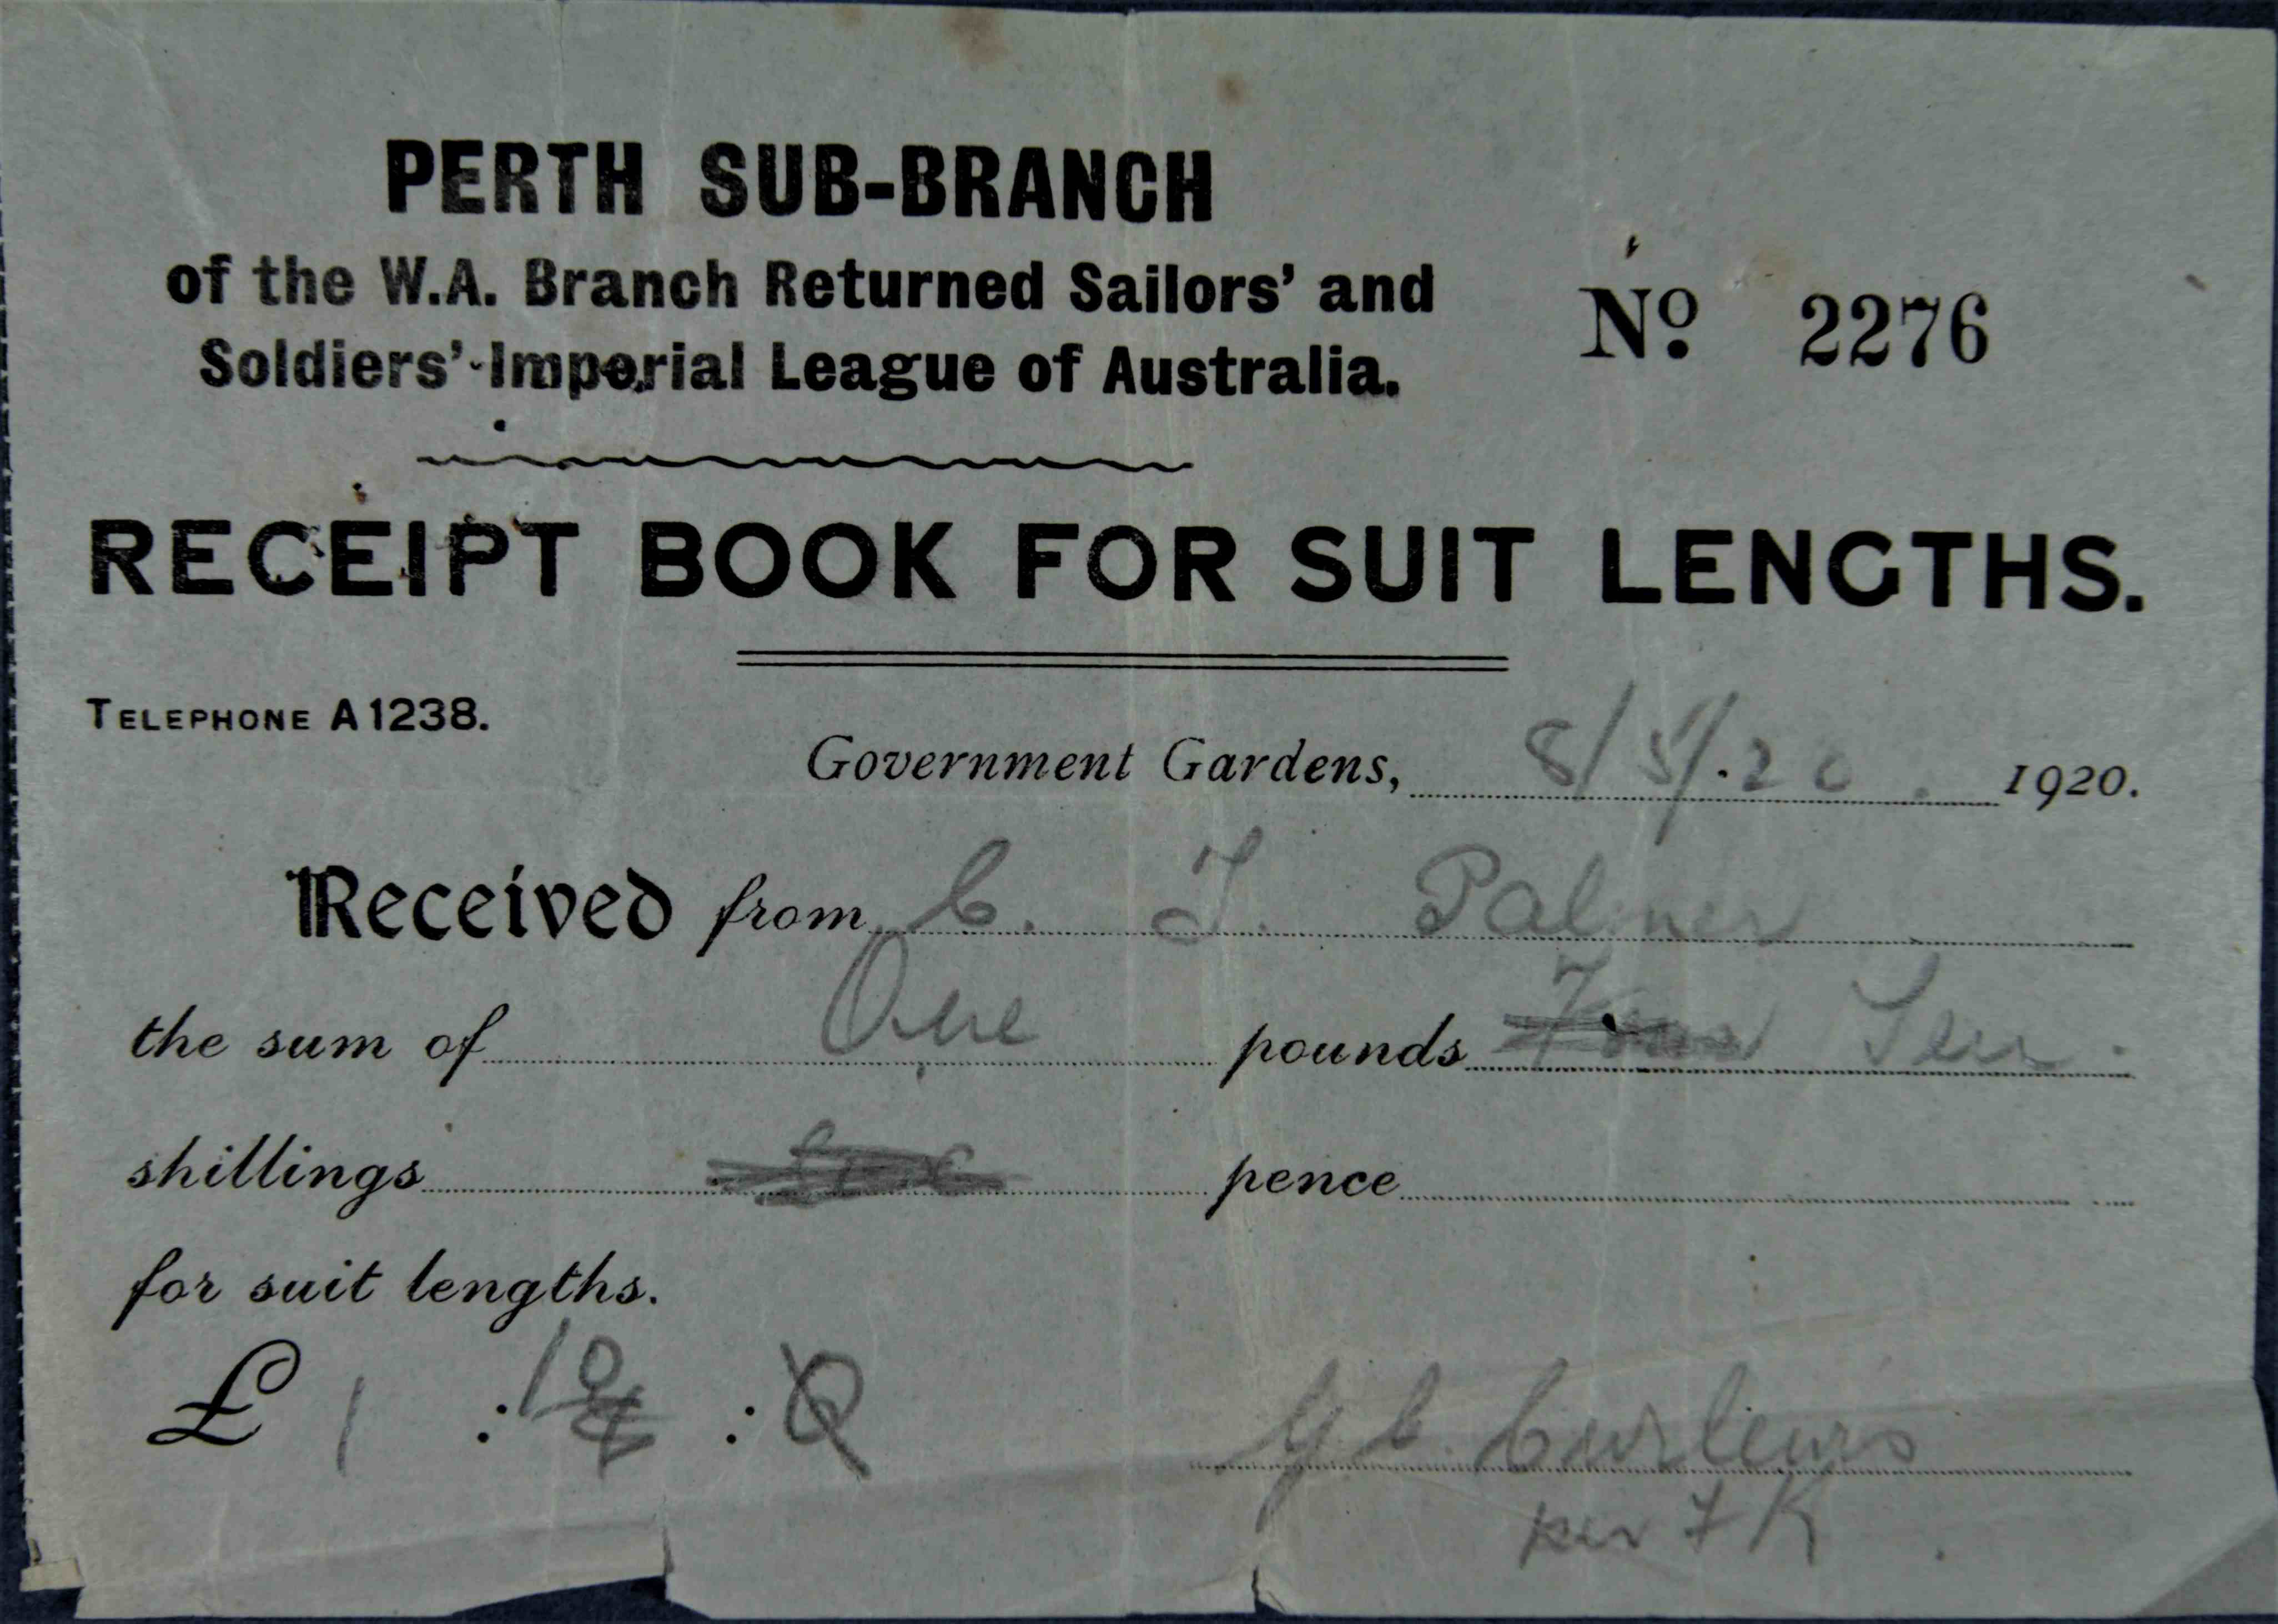 PERTH SUB-BRANCH
of the W.A. Branch Returned Sailors' and
Soldiers' Imperial League of Australia.
No. 2276
RECEIPT BOOK FOR SUIT LENGTHS.
TELEPHONE A1238.
Government Gardens, 8/5/.20. 1920.
Received from C. J. Palmer
the sum of One pounds Four Ten.
shillings pence
for suit lengths.
£ 1 : 10 4 : 0
G C. Curlewis
per F K